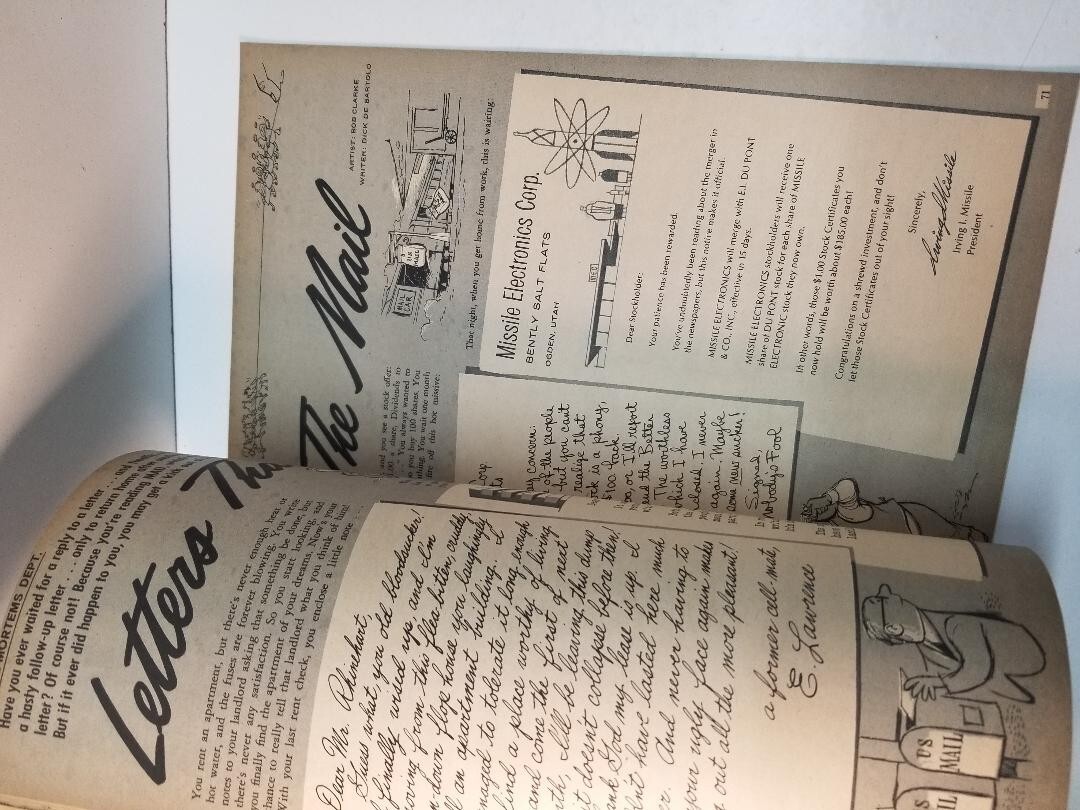 MORTEMS DEPT.
Have you ever waited for a reply to a letter . . . and
a hasty follow-up letter . . . only to return home,
letter? Of course not! Because you're reading MAD
But if it ever did happen to you, you may get a kick
Letters The
You rent an apartment, but there's never enough heat or
hot water, and the fuses are forever blowing. You write
notes to your landlord asking that something be done, but
there's never any satisfaction. So you start looking, and
you finally find the apartment of your dreams. Now's your
chance to really tell that landlord what you think of him!
With your last rent check, you enclose a little note . . .
Dear Mr. Rhinehart,
Guess what, you old bloodsucker!
I finally wised up and I'm
moving from this flea-bitten, cruddy,
run down flop house you laughingly
call an apartment building. I
managed to tolerate it long enough
find a place worthy of living
and come the first of next
month, I'll be leaving this dump
it doesn't collapse before then!
Thank God my lease is up. I
couldn't have lasted here much
And never having to
your ugly face again makes
out all the more pleasant!
a former cell-mate,
E. Lawrence
US
MAIL
US
The Mail
ARTIST: BOB CLARKE
WRITER: DICK DE BARTOLO
and you see a stock offer:
a share. Dividends to
You always wanted to
so you buy 100 shares. You
nothing. You wait one month
fire off this hot missive:
MAIL
CAR
Corp
concern:
of the people
but you can't
realize that
stock is a phony,
$100 back
or I'll report
and the Better
The worthless
which I have
closed, I never
again. Maybe
some new sucker!
Signed,
Nobody's Fool
That night, when you get home from work, this is waiting:
Missile Electronics Corp.
BENTLY SALT FLATS
OGDEN, UTAH
Dear Stockholder:
Your patience has been rewarded.
You've undoubtedly been reading about the merger in
the newspapers, but this notice makes it official.
MISSILE ELECTRONICS will merge with E.I. DU PONT
& CO., INC., effective in 15 days.
MISSILE ELECTRONICS stockholders will receive one
share of DU PONT stock for each share of MISSILE
ELECTRONIC stock they now own.
In other words, those $1.00 Stock Certificates you
now hold will be worth about $185.00 each!
Congratulations on a shrewd investment, and don't
let those Stock Certificates out of your sight!
Sincerely,
Irving I. Missile
Irving I. Missile
President
71